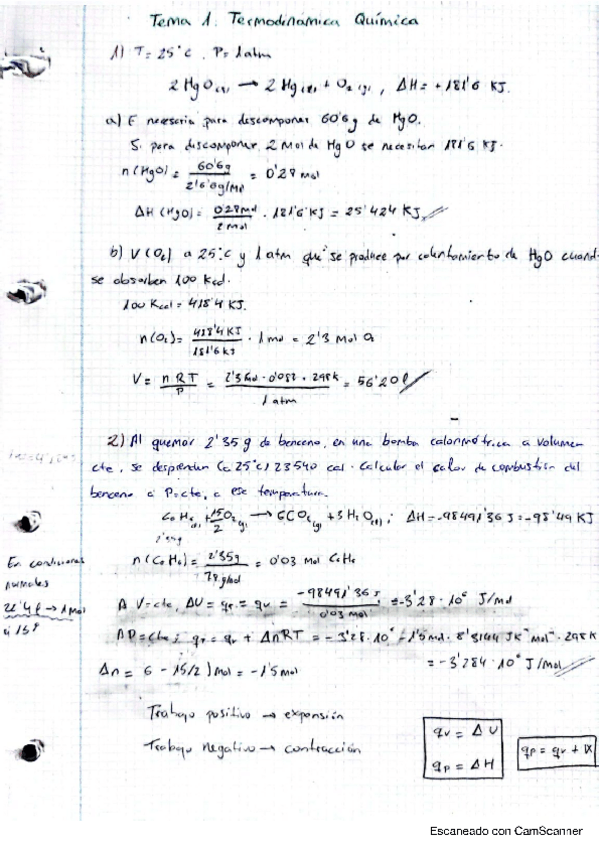 Tema 1. Termodinámica Química
1) T= 25°C, P= 1 atm
2 HgO(s) → 2 Hg(l) + O2(g), ΔH= +181'6 KJ.
a) E necesaria para descomponer 60'6g de HgO.
Si para descomponer 2 mol de HgO se necesitan 181'6 KJ.
n(HgO)= 60'6g / 216'0g/mol = 0'28 mol
ΔH (HgO)= 0'28mol / 2 mol · 181'6 KJ = 25'424 KJ
b) V(O2) a 25°C y 1 atm que se produce por calentamiento de HgO cuando
se absorben 100 Kcal.
100 Kcal = 418'4 KJ.
n(O2)= 418'4 KJ / 181'6 KJ · 1 mol = 2'3 mol O2
V = nRT / P = 2'3mol · 0'082 · 298K / 1 atm = 56'20 l
2) Al quemar 2'35 g de benceno, en una bomba calorimétrica a volumen
cte, se desprenden (a 25°C) 23540 cal. Calcular el calor de combustión del
benceno a P=cte, a ese temperatura.
C6H6(l) + 15/2 O2(g) → 6CO2(g) + 3H2O(l); ΔH= -98491'36 J = -98'49 KJ
n(C6H6)= 2'35g / 78 g/mol = 0'03 mol C6H6
En condiciones
normales
22'4 l → 1 mol
A V=cte, ΔU = qv = -98491'36 J / 0'03 mol = -3'28·10⁶ J/mol
A P=cte; qp = qv + ΔnRT = -3'28·10⁶ - 1'5 mol · 8'3144 JK⁻¹mol⁻¹ · 298K
= -3'284·10⁶ J/mol
Δn = 6 - 15/2) mol = -1'5 mol
Trabajo positivo → expansión
Trabajo negativo → contracción
qv = ΔU
qp = ΔH
qp = qv + W
Escaneado con CamScanner